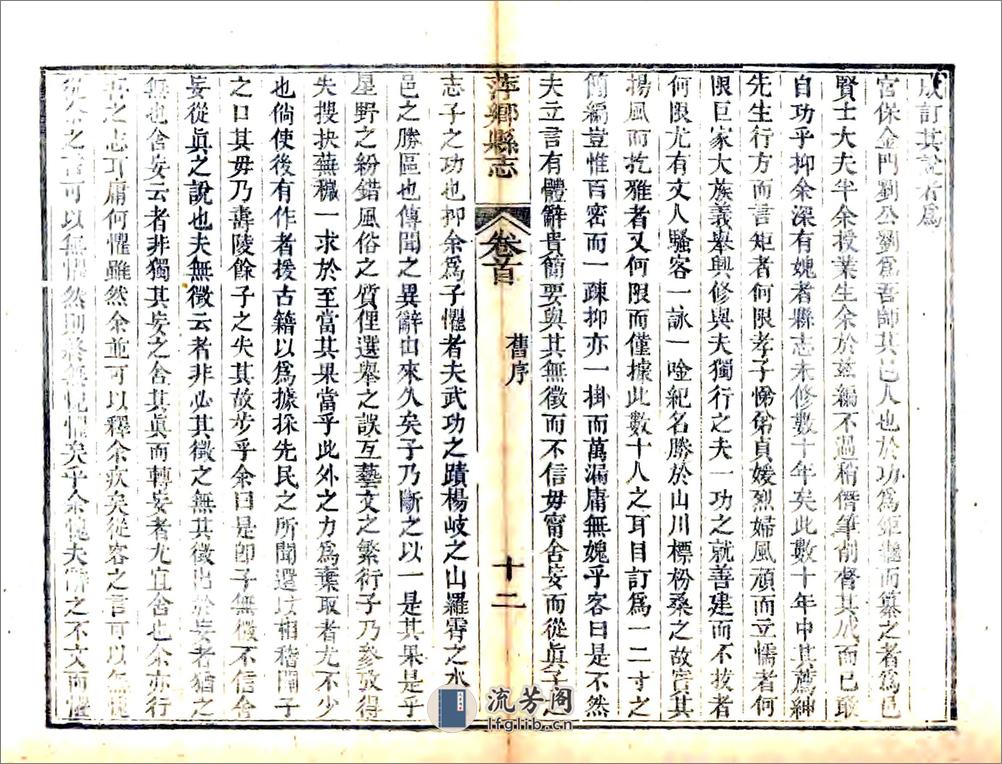 訂其說者爲
宮保金門劉公劉爲吾師其邑人也於功爲矩纂之者爲邑
賢士大夫半余授業生余於茲編不過稍僭筆削督其成而已敢
自功乎抑余深有媿者縣志未修數十年矣此數十年中其薦紳
先生行方而言矩者何限孝子悌弟貞媛烈婦風頑而立懦者何
限巨家大族義舉興修與夫獨行之夫一功之就善建而不拔者
何限尤有文人騷客一詠一唫紀名勝於山川標枌桑之故實其
揚風而扢雅者又何限而僅據此數十人之耳目訂爲一二寸之
簡編豈惟百密而一疎抑亦一掛而萬漏庸無媿乎客曰是不然
夫立言有體辭貴簡要與其無徵而不信毋甯舍妄而從眞子之
萍鄉縣志 卷首 舊序 十二
志子之功也抑余爲子懼者夫武功之蹟楊岐之山羅霄之水
邑之勝區也傳聞之異辭由來久矣子乃斷之以一是其果是乎
星野之紛錯風俗之質俚選舉之誤互藝文之繁衍子乃參攷得
失搜抉蕪穢一求於至當其果當乎此外之力爲棄取者尤不少
也倘使後有作者援古籍以爲據採先民之所聞還以相稽聞子
之口其毋乃壽陵餘子之失其故步乎余曰是卽子無徵不信舍
妄從眞之說也夫無徵云者非必其徵之無其徵出於妄者猶之
無也舍妄云者非獨其妄之舍其眞而轉妄者尤宜舍也余亦行
吾之志耳庸何懼雖然余並可以釋余疚矣從客之言可以無媿
從余之言可以無懼然則終無媿懼矣乎余媿夫辭之不文而懼
流芳阁
lfglib.cn